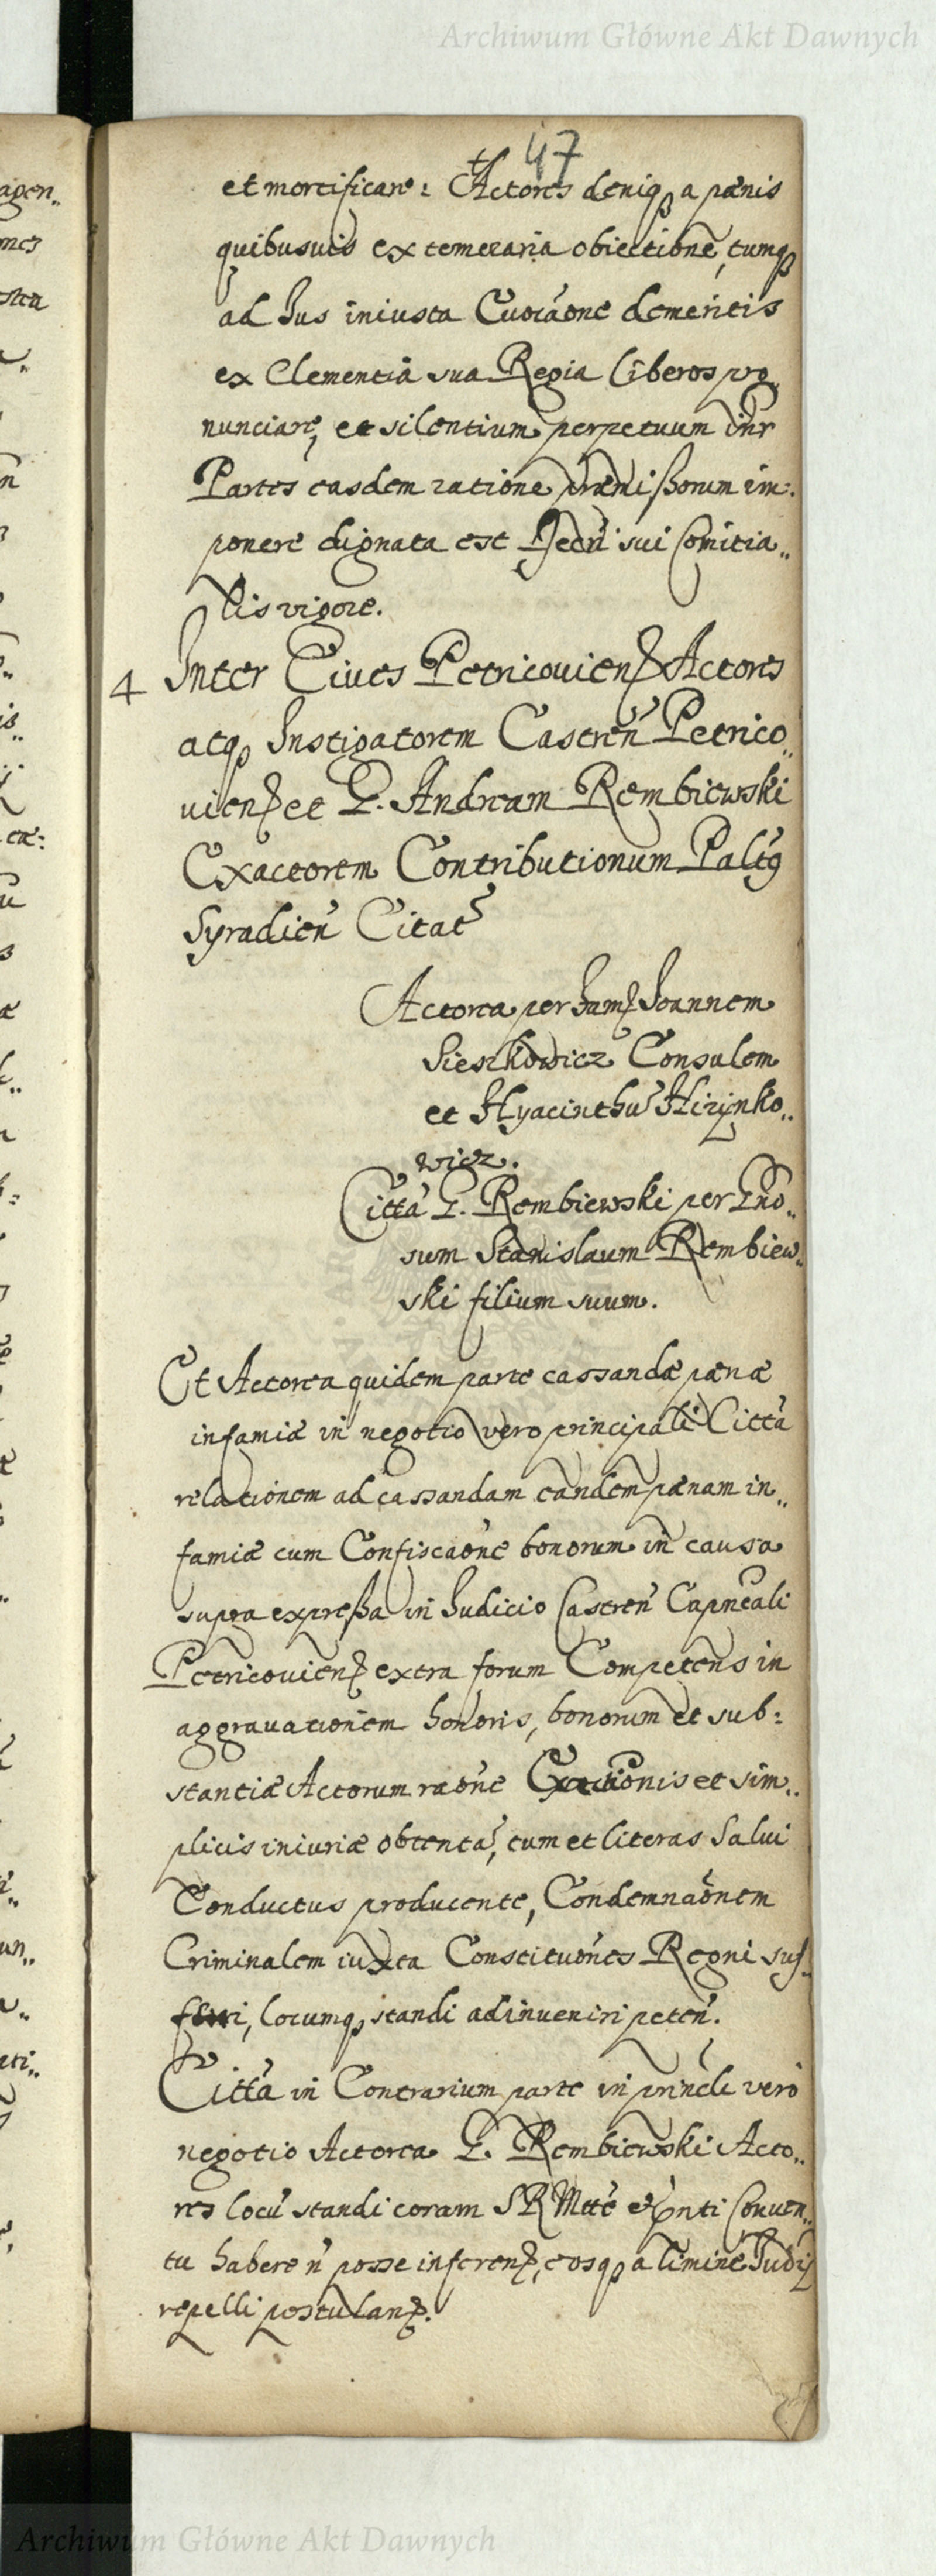 Archiwum Główne Akt Dawnych
47
et mortificare: Actores deniqꝫ a pœnis
quibusuis ex temeraria obiectione, tumqꝫ
ad Ius iniusta Euocaōne demeritis
ex Clementia sua Regia liberos pro„
nunciare, et silentium perpetuum intr
Partes easdem ratione præmissorum im:
ponere dignata est Decri sui Comitia„
lis vigore.
4 Inter Ciues Petricouien Actores
atqꝫ Instigatorem Castren Petrico„
uien et G. Andream Rembiewski
Exactorem Contributionum Paltus
Syradien Citat
Actorea per Fam Ioannem
Sieszkowicz Consulem
et Hyacinthu Hirynko„
wicz.
Citta G. Rembiewski per Gno„
sum Stanislaum Rembiew„
ski filium suum.
Et Actorea quidem parte cassandæ pænæ
infamiæ in negotio vero principali Citta
relationem ad cassandam eandem pænam in„
famiæ cum Confiscaōne bonorum in causa
supra expressa in Iudicio Castren Capneali
Petricouien extra forum Competens in
aggrauationem honoris, bonorum et sub:
stantiæ Actorum raōne et sim„
plicis iniuriæ obtenta, tum et literas Salui
Conductus producente, Condemnaōnem
Criminalem iuxta Constituōnes Regni suf„
ferri, locumqꝫ standi adinueniri peten.
Citta in Contrarium parte in princli vero
negotio Actorea G. Rembiewski Acto„
res locu standi coram SRMtte et pnti Conuen„
tu habere n posse inferen, eosqꝫ a limine Iudij
repelli postulan.
Archiwum Główne Akt Dawnych